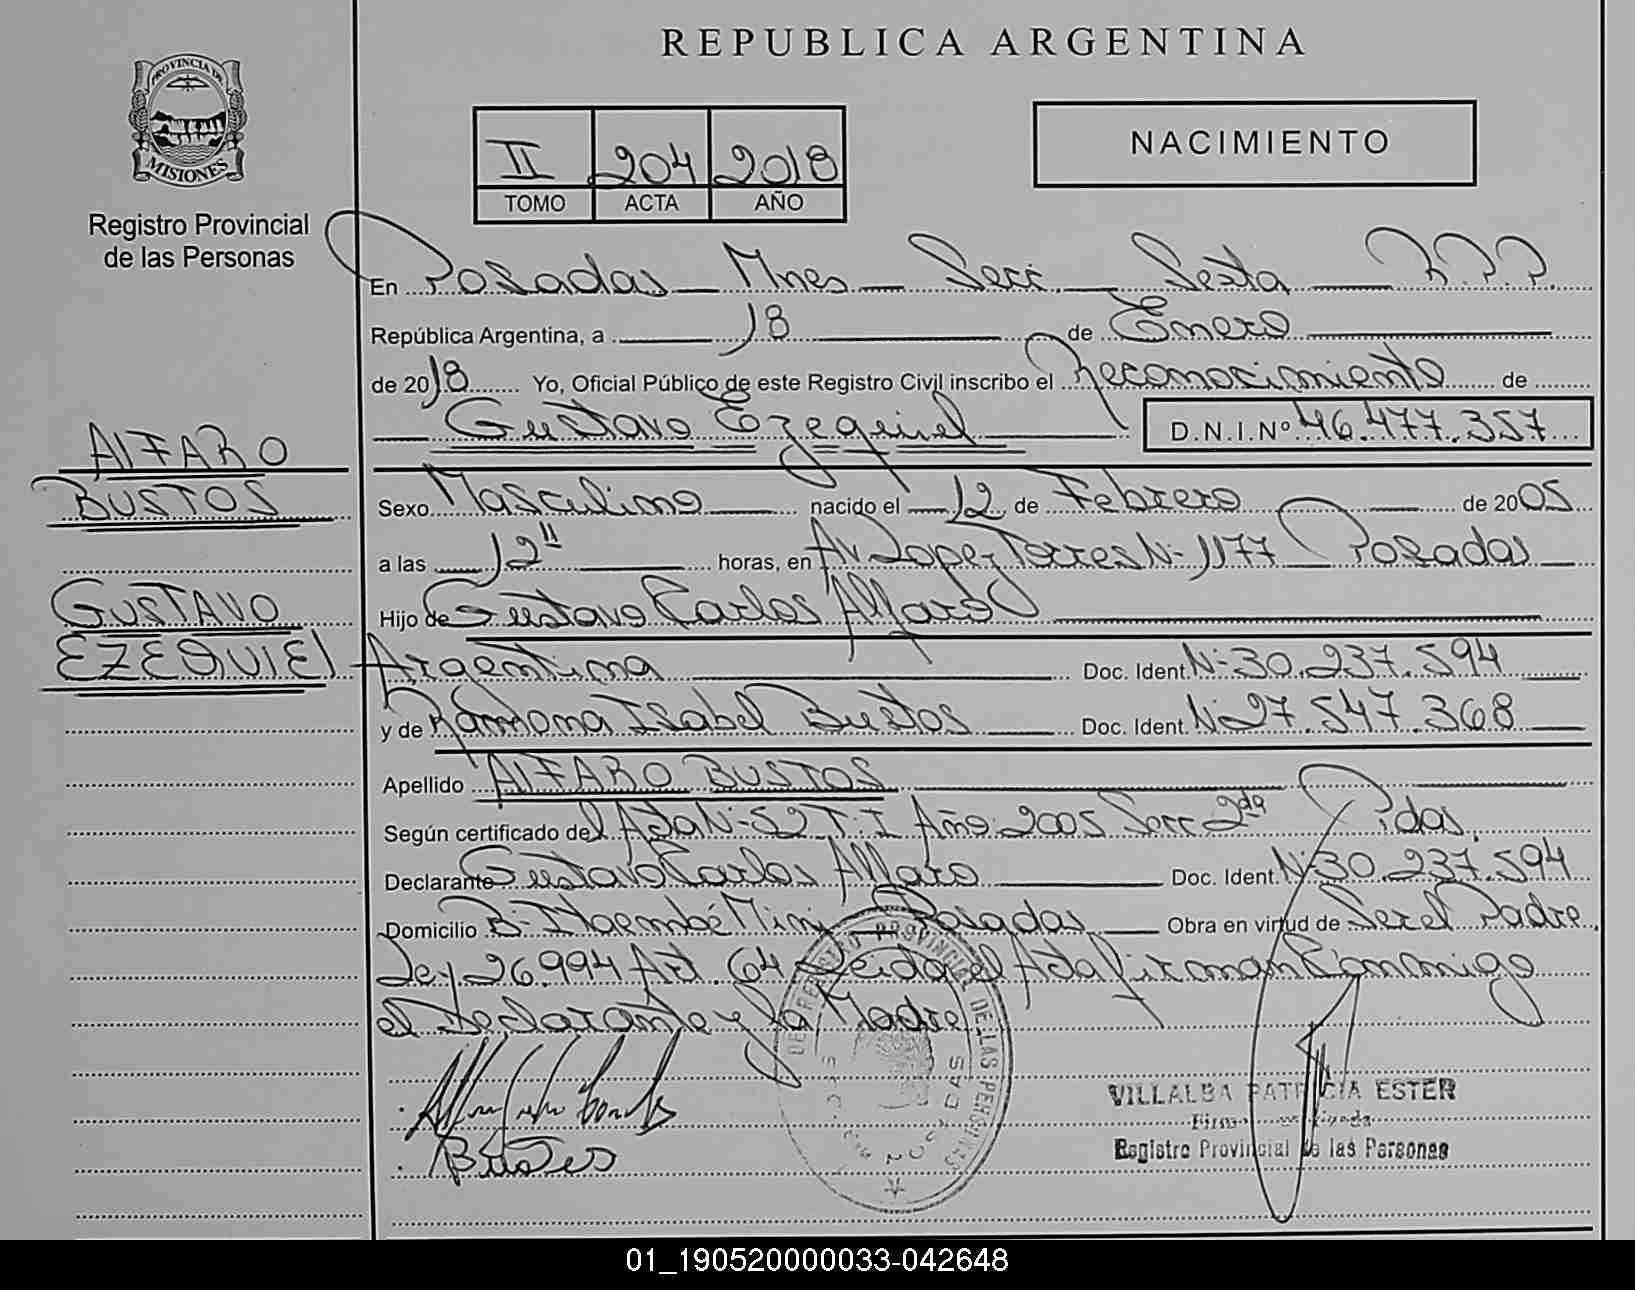 REPUBLICA ARGENTINA
PROVINCIA DE
MISIONES
Registro Provincial
de las Personas
II 204 2018
TOMO ACTA AÑO
NACIMIENTO
En Posadas Mnes Secc. Sexta R.P.P.
República Argentina, a 18 de Enero
de 2018 Yo, Oficial Público de este Registro Civil inscribo el Reconocimiento de
Gustavo Ezequiel D.N.I.Nº 46.477.357
ALFARO
BUSTOS
GUSTAVO
EZEQUIEL
Sexo Masculino nacido el 12 de Febrero de 2005
a las 12" horas, en Av Lopez Torres Nº 1177 Posadas
Hijo de Gustavo Carlos Alfaro
Argentina Doc. Ident. Nº 30.237.594
y de Ramona Isabel Bustos Doc. Ident. Nº 27.547.368
Apellido ALFARO BUSTOS
Según certificado del Acta Nº 52 T. I Año 2005 Secc 2da Pdas.
Declarante Gustavo Carlos Alfaro Doc. Ident. Nº 30.237.594
Domicilio Bº Itaembé Mini Posadas Obra en virtud de Ser el Padre
Ley 26.994 Art. 64 Leida el Acta firman Conmigo
el Declarante y la Madre
REGISTRO PROVINCIAL DE LAS PERSONAS
Bustos
VILLALBA PATRICIA ESTER
Registro Provincial de las Personas
01_190520000033-042648